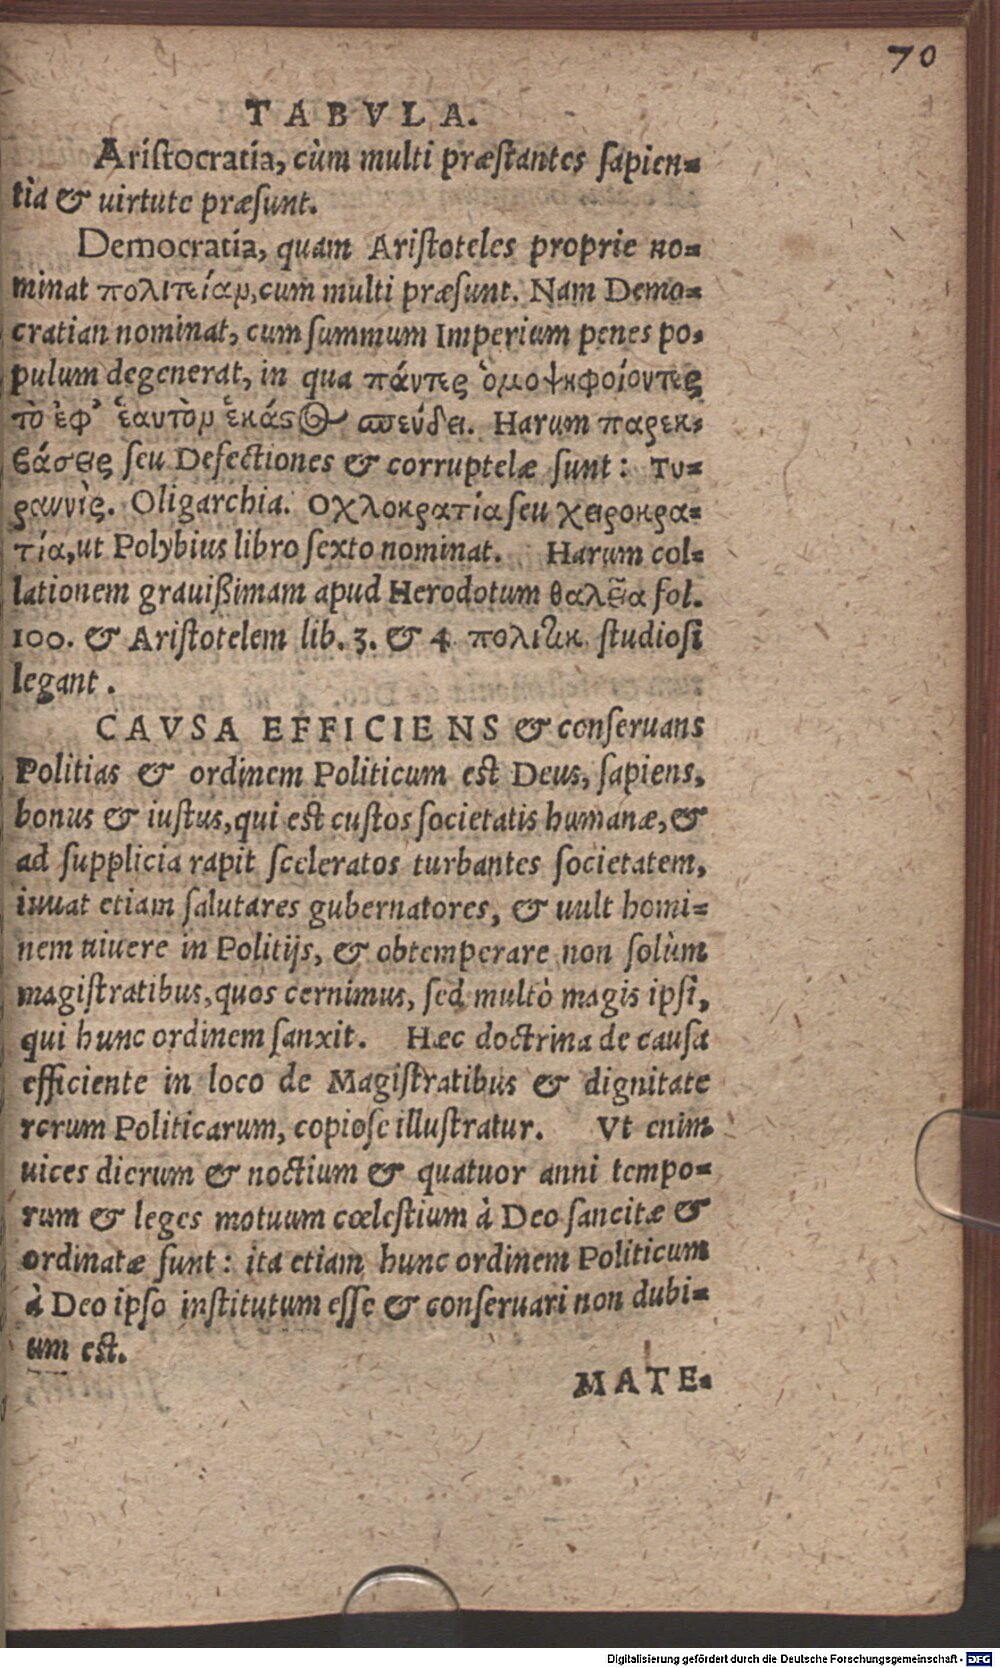 70
TABVLA.
Aristocratia, cùm multi præstantes sapien=
tia & uirtute præsunt.
Democratia, quam Aristoteles proprie no=
minat πολιτείαν, cum multi præsunt. Nam Demo=
cratian nominat, cum summum Imperium penes po=
pulum degenerat, in qua πάντες
τὸ ἐφ' ἑαυτὸν ἕκαστος σπεύδει. Harum παρεκ=
βάσεις seu Defectiones & corruptelæ sunt: Τυ=
ραννὶς. Oligarchia. Οχλοκρατία seu χειροκρα=
τία, ut Polybius libro sexto nominat. Harum col=
lationem grauißimam apud Herodotum θαλεία fol.
100. & Aristotelem lib. 3. & 4 πολιτικ studiosi
legant.
CAVSA EFFICIENS & conseruans
Politias & ordinem Politicum est Deus, sapiens,
bonus & iustus, qui est custos societatis humanæ, &
ad supplicia rapit sceleratos turbantes societatem,
iuuat etiam salutares gubernatores, & uult homi=
nem uiuere in Politijs, & obtemperare non solùm
magistratibus, quos cernimus, sed multò magis ipsi,
qui hunc ordinem sanxit. Hæc doctrina de causa
efficiente in loco de Magistratibus & dignitate
rerum Politicarum, copiose illustratur. Vt enim
uices dierum & noctium & quatuor anni tempo=
rum & leges motuum cœlestium à Deo sancitæ &
ordinatæ sunt: ita etiam hunc ordinem Politicum
à Deo ipso institutum esse & conseruari non dubi=
um est.
MATE=
Digitalisierung gefördert durch die Deutsche Forschungsgemeinschaft - DFG